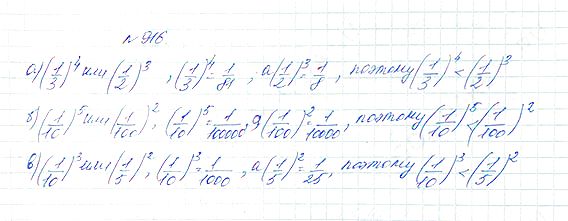 №916.
а) (1/3)^4 или (1/2)^3, (1/3)^4 = 1/81, а (1/2)^3 = 1/8, поэтому (1/3)^4 < (1/2)^3
б) (1/10)^5 или (1/100)^2, (1/10)^5 = 1/100000, а (1/100)^2 = 1/10000, поэтому (1/10)^5 < (1/100)^2
в) (1/10)^3 или (1/5)^2, (1/10)^3 = 1/1000, а (1/5)^2 = 1/25, поэтому (1/10)^3 < (1/5)^2